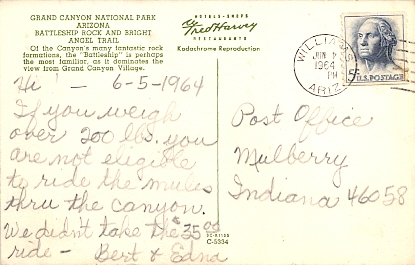 GRAND CANYON NATIONAL PARK
ARIZONA
BATTLESHIP ROCK AND BRIGHT
ANGEL TRAIL
Of the Canyon's many fantastic rock
formations, the "Battleship" is perhaps
the most familiar, as it dominates the
view from Grand Canyon Village.
HOTELS-SHOPS
Fred Harvey
RESTAURANTS
Kodachrome Reproduction
WILLIAMS
JUN
1964
PM
ARIZ
5¢ U.S. POSTAGE
Hi! - 6-5-1964
If you weigh
over 200 lbs. you
are not eligible
to ride the mules
thru the canyon.
We didn't take the $35.00
ride - Bert & Edna
Post Office
Mulberry
Indiana 46058
C-5334